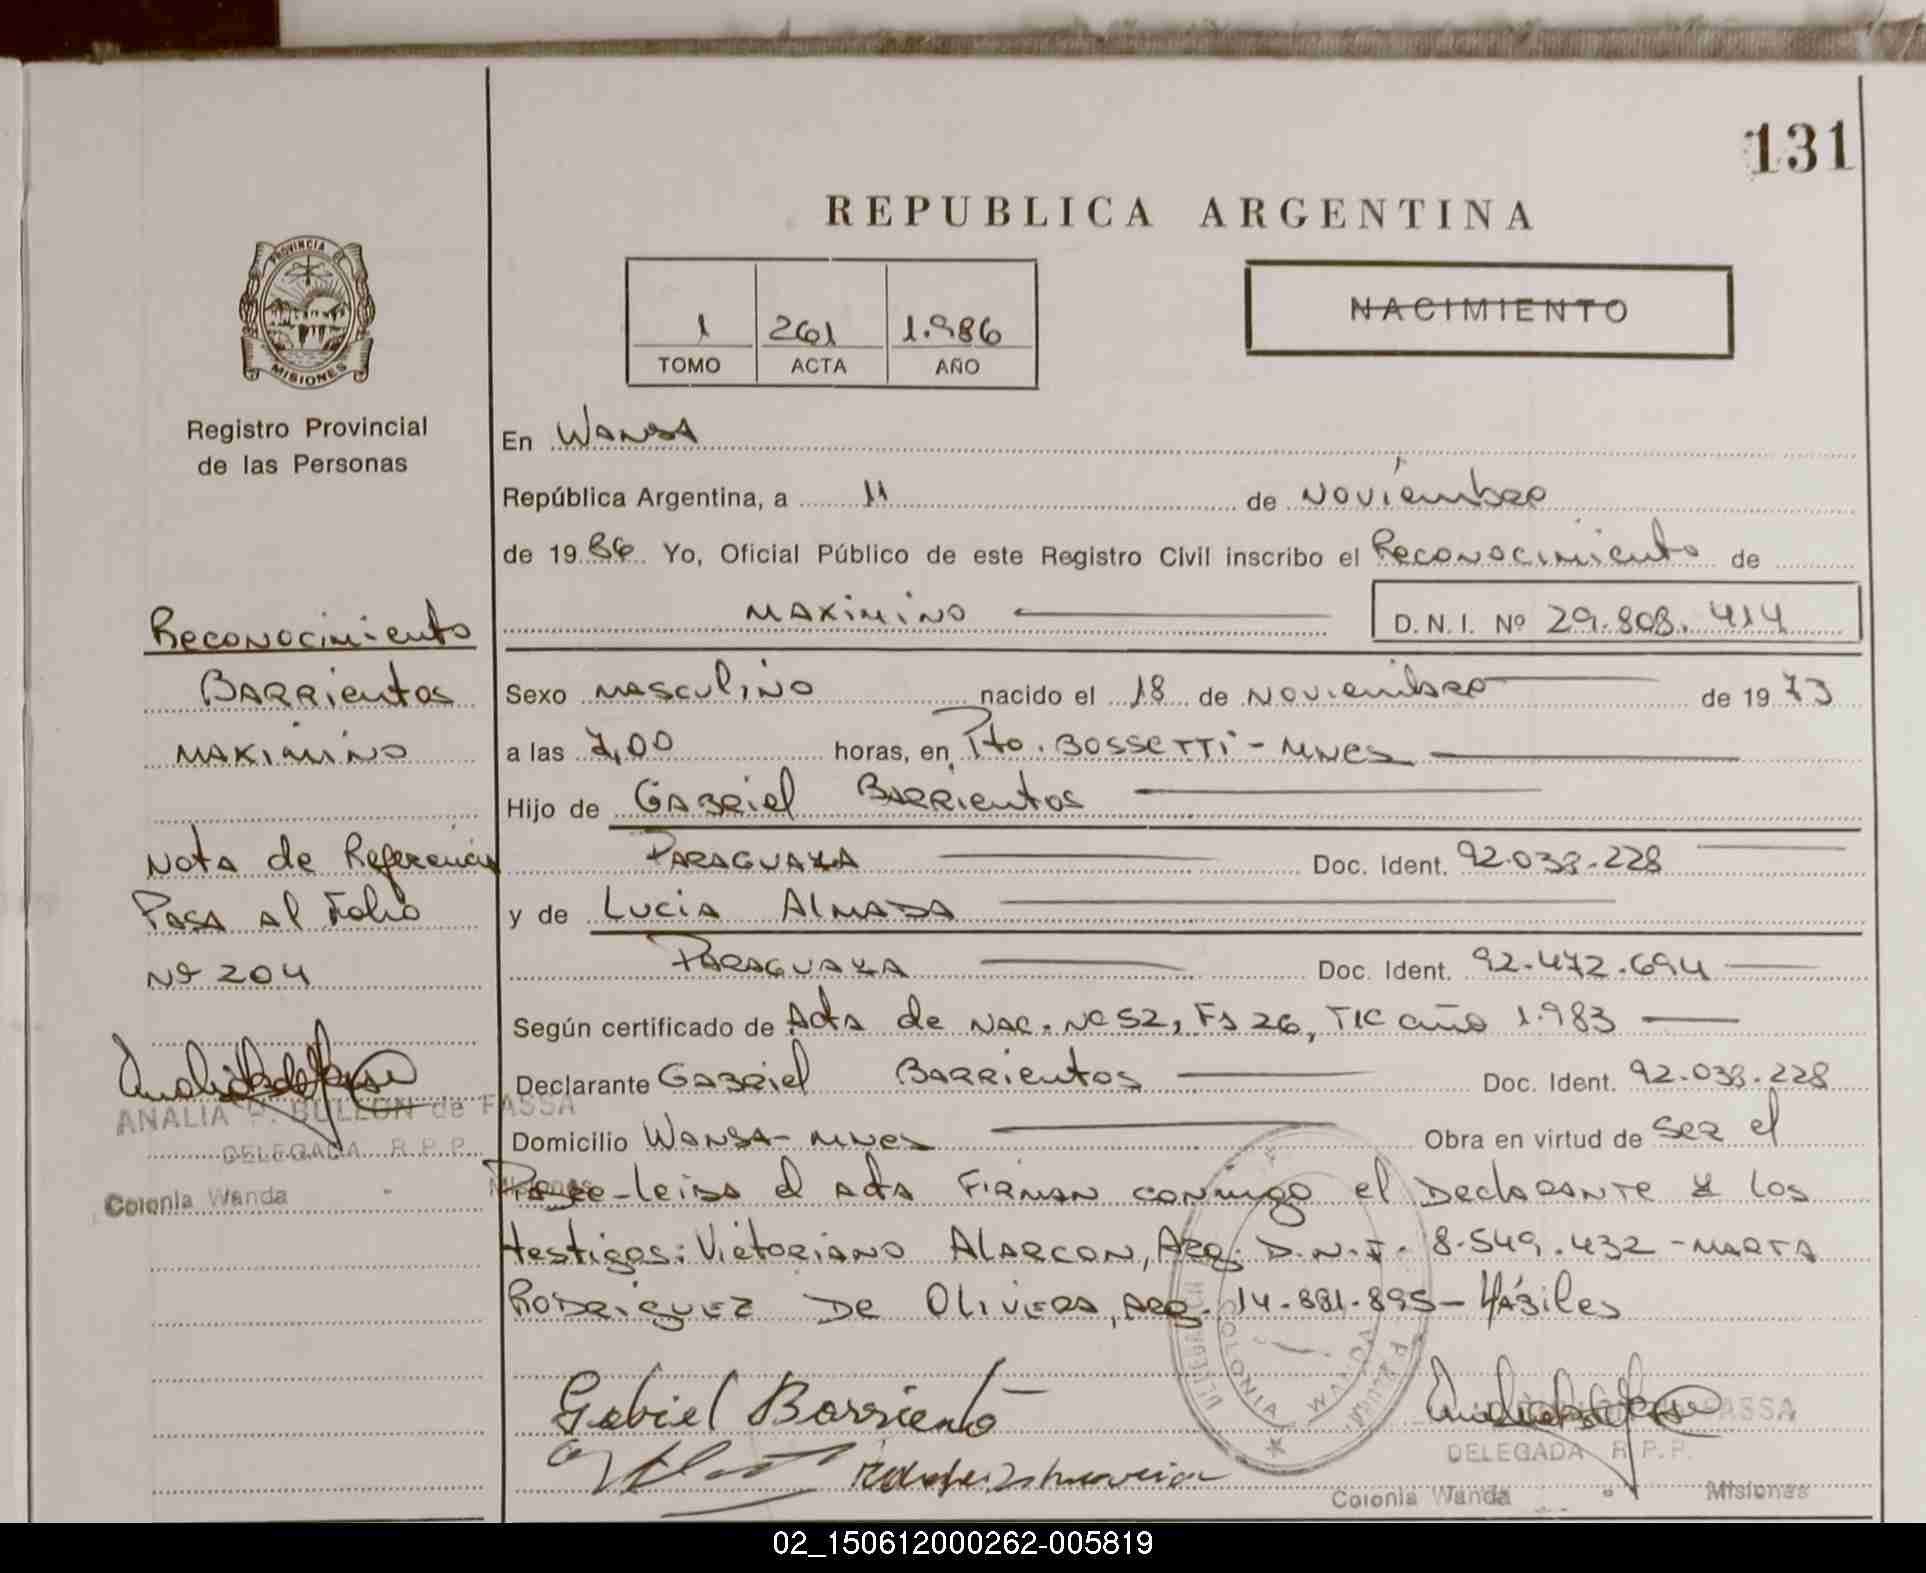 131
REPUBLICA ARGENTINA
PROVINCIA DE
MISIONES
Registro Provincial
de las Personas
1 261 1.986
TOMO ACTA AÑO
NACIMIENTO
En Wanda
República Argentina, a 11 de Noviembre
de 1986 Yo, Oficial Público de este Registro Civil inscribo el Reconocimiento de
Maximino D.N.I. Nº 29.808.414
Reconocimiento
Barrientos
Maximino
Nota de Referencia
Pasa al Folio
Nº 204
ANALIA P. BULLON de FASSA
DELEGADA R.P.P.
Colonia Wanda - Misiones
Sexo masculino nacido el 18 de Noviembre de 1973
a las 7,00 horas, en Pto. Bossetti - Mnes
Hijo de Gabriel Barrientos
Paraguaya Doc. Ident. 92.038.228
y de Lucia Almada
Paraguaya Doc. Ident. 92.472.694
Según certificado de Acta de Nac. Nº 52, Fs 26, T1C año 1.983
Declarante Gabriel Barrientos Doc. Ident. 92.038.228
Domicilio Wanda - Mnes Obra en virtud de ser el
Padre - Leida el acta firman conmigo el Declarante y los
testigos: Victoriano Alarcon, Arg. D.N.I. 8.549.432 - Marta
Rodriguez De Olivera, Arg. 14.881.895 - Hábiles
Gabriel Barriento
COLONIA WANDA
FASSA
DELEGADA R.P.P.
Colonia Wanda - Misiones
02_150612000262-005819